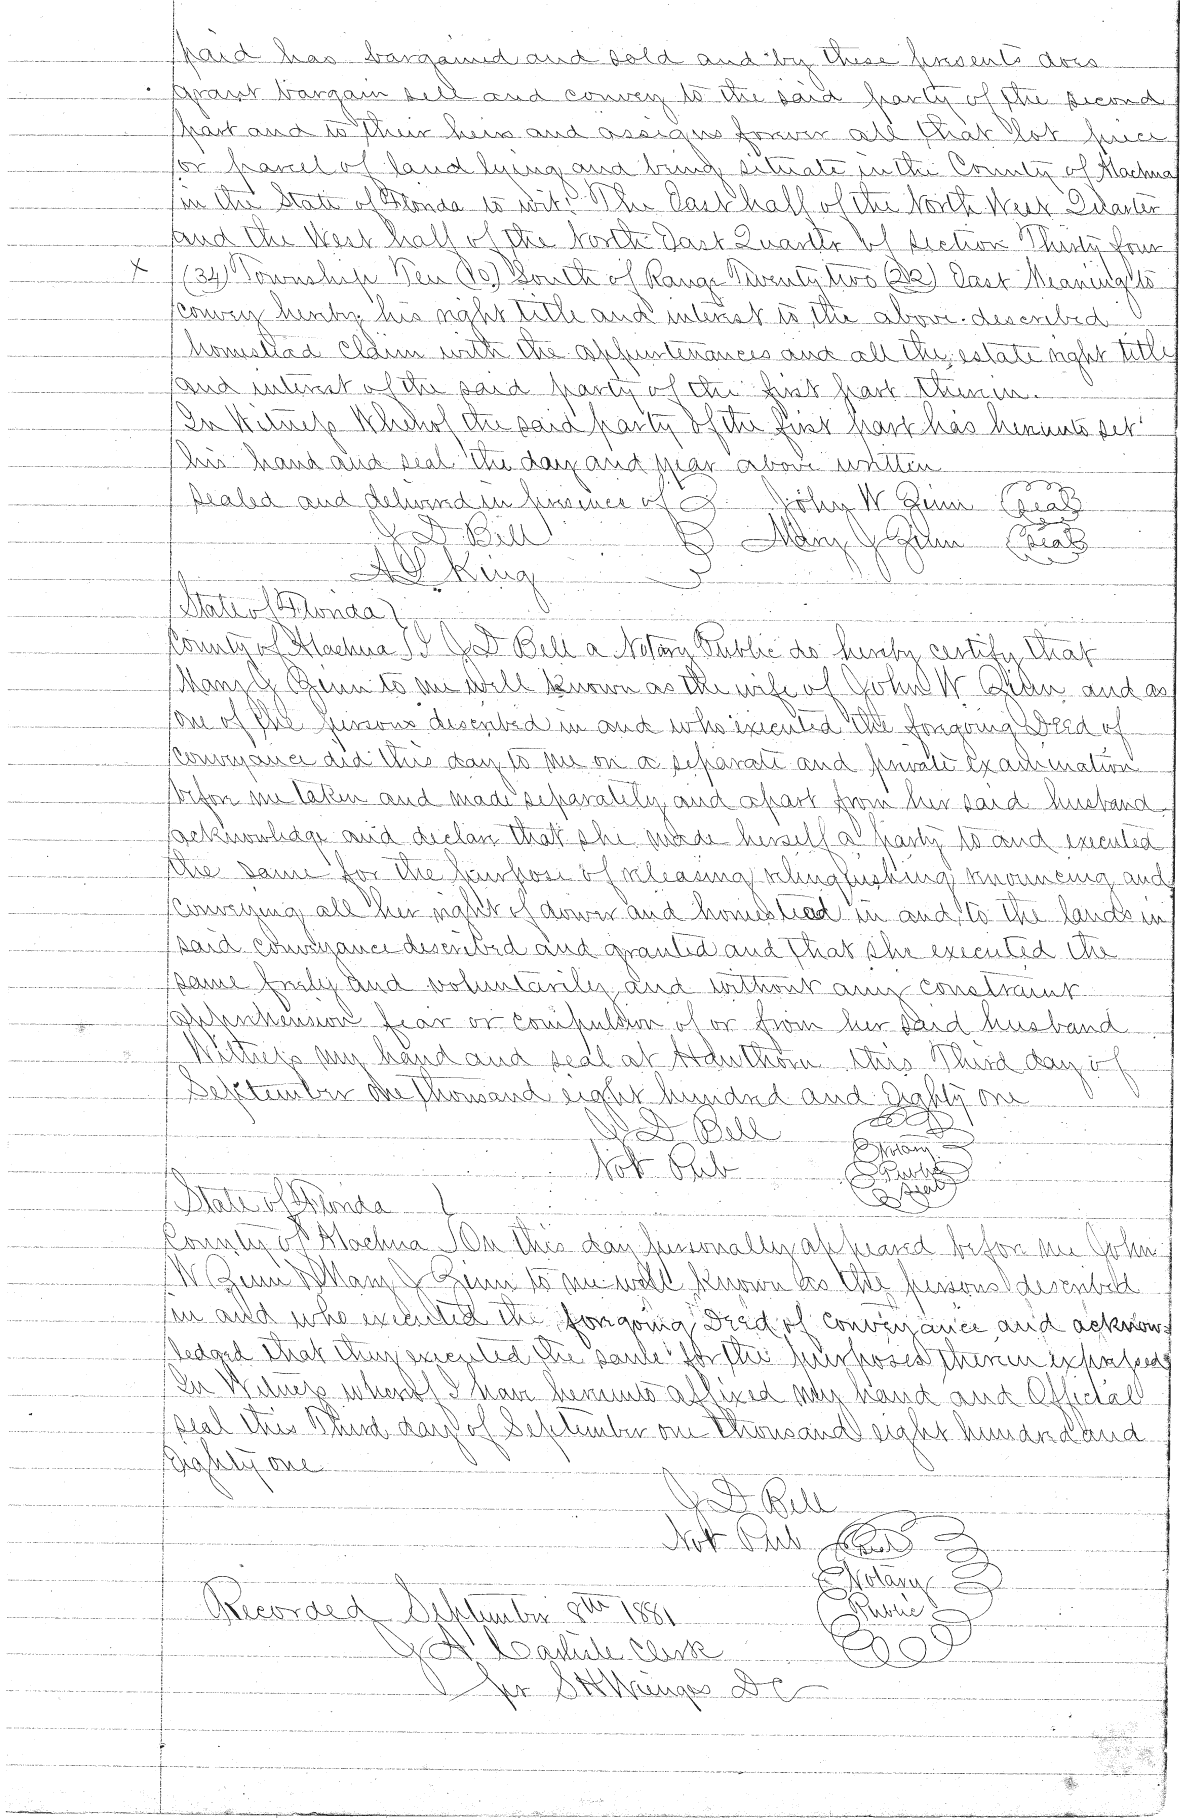 paid has bargained and sold and by these presents does
grant bargain sell and convey to the said party of the second
part and to their heirs and assigns forever all that lot piece
or parcel of land lying and being situate in the County of Alachua
in the State of Florida to wit: The East half of the North West Quarter
and the West half of the North East Quarter of section Thirty four
x (34) Township Ten (10) South of Range Twenty two (22) East Meaning to
convey hereby his right title and interest to the above described
homestead claim with the appurtenances and all the estate right title
and interest of the said party of the first part therein.
In Witness Whereof the said party of the first part has hereunto set
his hand and seal the day and year above written
Sealed and delivered in presence of John W Zinn (seal)
J D Bell Mary J Zinn (seal)
A S King
State of Florida
County of Alachua I J D Bell a Notary Public do hereby certify that
Mary J Zinn to me well known as the wife of John W Zinn and as
one of the persons described in and who executed the forgoing Deed of
conveyance did this day to me on a separate and private examination
before me taken and made separately and apart from her said husband
acknowledge and declare that she made herself a party to and executed
the same for the purpose of releasing relinquishing renouncing and
conveying all her right of dower and homestead in and to the lands in
said conveyance described and granted and that she executed the
same freely and voluntarily and without any constraint
apprehension fear or compulsion of or from her said husband
Witness my hand and seal at Hawthorn this Third day of
September one thousand eight hundred and Eighty one
J D Bell
Not Pub
Notary
Public
Seal
State of Florida
County of Alachua On this day personally appeared before me John
W Zinn & Mary J Zinn to me well known as the persons described
in and who executed the forgoing Deed of conveyance and acknow-
ledged that they executed the same for the purposes therein expressed
In Witness whereof I have hereunto affixed my hand and Official
seal this Third day of September one thousand eight hundred and
Eighty one
J D Bell
Not Pub
Seal
Notary
Public
Recorded September 8th 1881
J A Carlisle Clerk
per S H Wienges DC